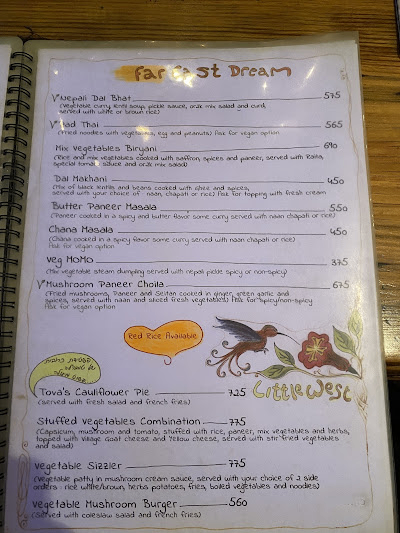 Far East Dream
Nepali Dal Bhat 575
(Vegetable curry, lentil soup, pickle sauce, or.JK mix salad and curd,
served with white or brown rice)
Pad Thai 565
(Fried noodles with vegetables, egg and peanuts) Ask for vegan option
Mix Vegetables Biryani 690
(Rice and mix vegetables cooked with saffron, spices and paneer, served with Raita,
special tomato sauce and or.JK mix salad)
Dal Makhani 450
(Mix of black lintils and beans cooked with Ghee and spices,
served with your choice of naan, chapati or rice) Ask for topping with fresh cream
Butter Paneer Masala 550
(Paneer cooked in a spicy and butter flavor some curry served with naan chapati or rice)
Chana Masala 450
(Chana cooked in a spicy flavor some curry served with naan chapati or rice)
Ask for vegan option
Veg MOMO 375
(Mix vegetable steam dumpling served with nepali pickle spicy or non-spicy)
Mushroom Paneer Choila 675
(Fried mushrooms, Paneer and Seitan cooked in ginger, green garlic and
spices, served with naan and sliced fresh vegetables) Ask for spicy/non-spicy
Ask for vegan option
Red Rice Available
Little West
Tova's Cauliflower Pie 725
(served with fresh salad and french fries)
Stuffed Vegetables Combination 775
(Capsicum, mushroom and tomato, stuffed with rice, paneer, mix vegetables and herbs,
topped with Village Goat cheese and Yellow cheese, served with stir fried vegetables
and salad)
Vegetable Sizzler 775
(Vegetable patty in mushroom cream sauce, served with your choice of 2 side
orders : rice white/brown, herbs potatoes, fries, boiled vegetables and noodles)
Vegetable Mushroom Burger 560
(Served with coleslaw salad and french fries)